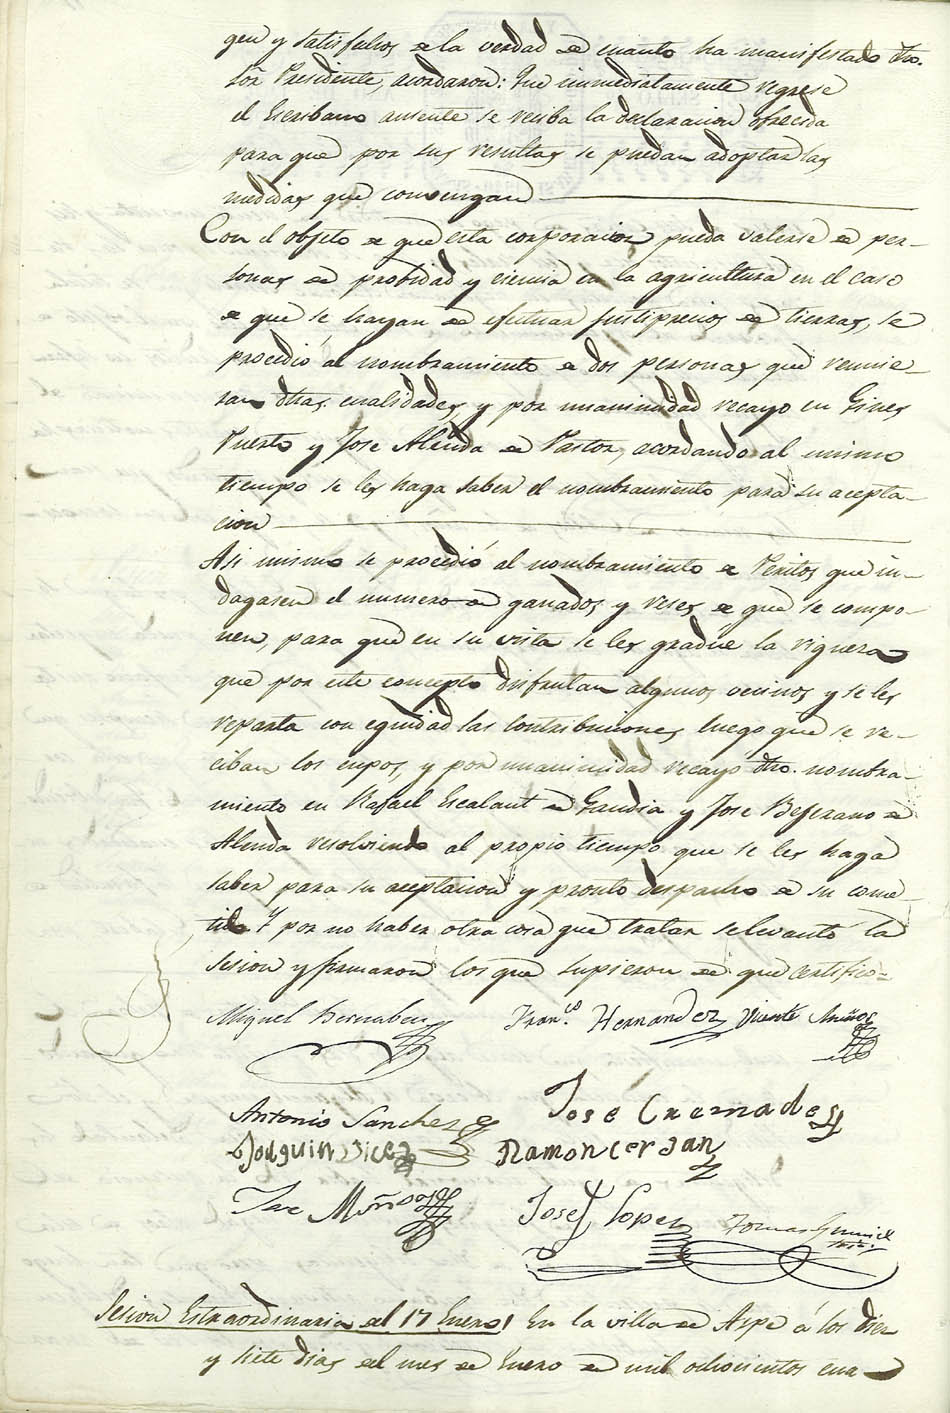 gen y satisfechos de la verdad de cuanto ha manifestado dho.
Sor. Presidente, acordaron: Que inmediatamente regrese
el Escribano ausente se reciba la declaracion ofrecida
para que por sus resultas se puedan adoptar las
medidas que convengan
Con el objeto de que esta corporacion pueda valerse de per-
sonas de probidad y ciencia en la agricultura en el caso
de que se hayan de efectuar justiprecios de tierras, se
procedió al nombramiento de dos personas que reunie-
ran dhas. cualidades, y por unanimidad recayo en Gines
Puerto y Jose Alenda de Pastor, acordando al mismo
tiempo se les haga saber el nombramiento para su acepta-
cion
Asi mismo se procedió al nombramiento de Peritos que in-
dagasen el numero de ganados y reses de que se compo-
nen, para que en su vista se les gradue la riqueza
que por este concepto disfrutan algunos vecinos y se les
reparta con equidad las contribuciones luego que se re-
ciban los cupos, y por unanimidad recayó dho. nombra-
miento en Rafael Escalant de Gandia y Jose Bejerano de
Alenda resolviendo al propio tiempo que se les haga
saber para su aceptacion y pronto despacho de su come-
tido Y por no haber otra cosa que tratar se levantó la
sesion y firmaron los que supieron de que certifico-
Miguel Bernabeu Fran.co Hernandez Vicente Muñoz
Antonio Sanchez José Cremades
Joaquin Ramon Cerdan
Jose Muñoz Josef Lopez Tomas
Sesion Extraordinaria del 17 Enero En la villa de Aspe á los diez
y siete dias del mes de Enero de mil ochocientos cua